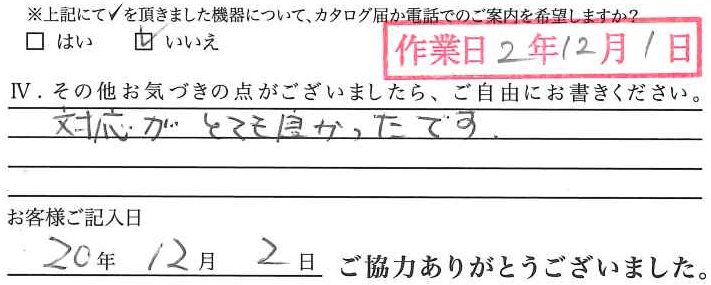 ※上記にて✓を頂きました機器について、カタログ届か電話でのご案内を希望しますか?
□ はい ☑ いいえ
作業日 2年12月1日
Ⅳ．その他お気づきの点がございましたら、ご自由にお書きください。
対応がとても良かったです．
お客様ご記入日
20年 12月 2日 ご協力ありがとうございました。